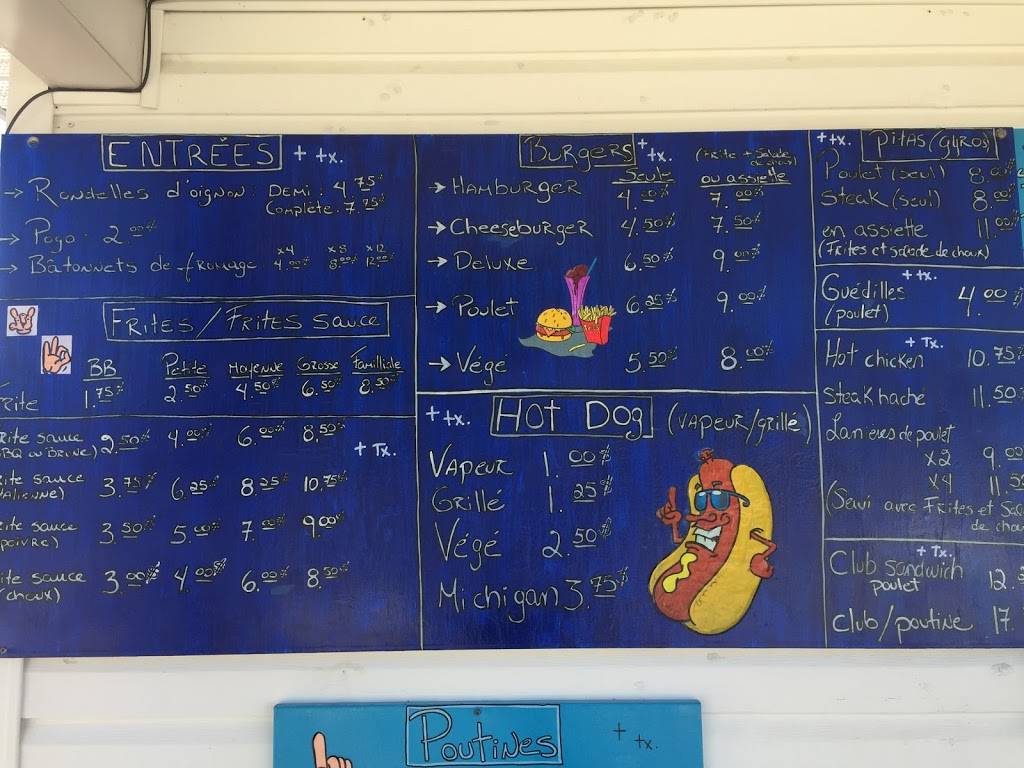 ENTRÉES + tx.
→ Rondelles d'oignon: DEMI: 4.75¢
Complète: 7.75¢
→ Pogo: 2.00¢
x4 x8 x12
→ Bâtonnets de fromage 4.00¢ 8.00¢ 12.00¢
FRITES/FRITES SAUCE
BB Petite Moyenne Grosse Familliale
rite 1.75¢ 2.50¢ 4.50¢ 6.50¢ 8.50¢
rite sauce 2.50¢ 4.00¢ 6.00¢ 8.50¢
BQ ou BRUNE) + Tx.
rite sauce 3.75¢ 6.25¢ 8.25¢ 10.75¢
TALIENNE)
rite sauce 3.50¢ 5.00¢ 7.00¢ 9.00¢
poivre)
rite sauce 3.00¢ 4.00¢ 6.00¢ 8.50¢
choux)
BURGERS + tx. (Frite + Salade
de chou)
Seule ou assiette
→ HAMBURGER 4.00¢ 7.00¢
→ Cheeseburger 4.50¢ 7.50¢
→ Deluxe 6.50¢ 9.00¢
→ Poulet 6.25¢ 9.00¢
→ Végé 5.50¢ 8.00¢
+ tx. HOT DOG (VAPEUR/grillé)
VAPEUR 1.00¢
Grillé 1.25¢
Végé 2.50¢
Michigan 3.75¢
+ tx. Pitas (Gyros)
Poulet (seul) 8.00
Steak (seul) 8.00
en assiette 11.00
(Frites et salade de choux)
+ tx.
Guédilles 4.00¢
(poulet)
+ Tx.
Hot chicken 10.75
Steak haché 11.50
Lanieres de poulet
x2 9.00
x4 11.
(Servi avec Frites et Sal
de chou
+ Tx.
Club sandwich 12.
poulet
club/poutine 17.
Poutines + tx.